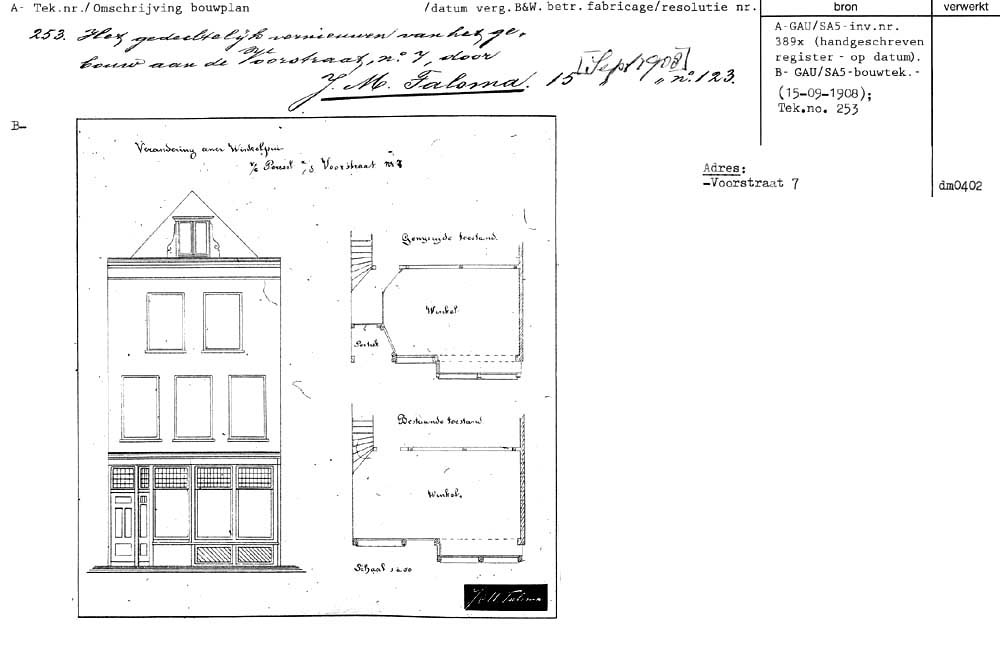 A- Tek.nr./Omschrijving bouwplan /datum verg.B&W. betr. fabricage/resolutie nr. bron verwerkt
253. Het gedeeltelijk vernieuwen van het ge-
bouw aan de Voorstraat, no. 7, door
J. M. Taloma. 15 [Sept 1908] „ no. 123.
A-GAU/SA5-inv.nr.
389x (handgeschreven
register - op datum).
B- GAU/SA5-bouwtek.-
(15-09-1908);
Tek.no. 253
Adres:
-Voorstraat 7
dm0402
B-
Verandering eener Winkelpui
v/e Perceel a/d Voorstraat No 7
Gewijzigde toestand.
Winkel
Portiek
Bestaande toestand
Winkel.
Schaal 1 à 50
J. M. Taloma